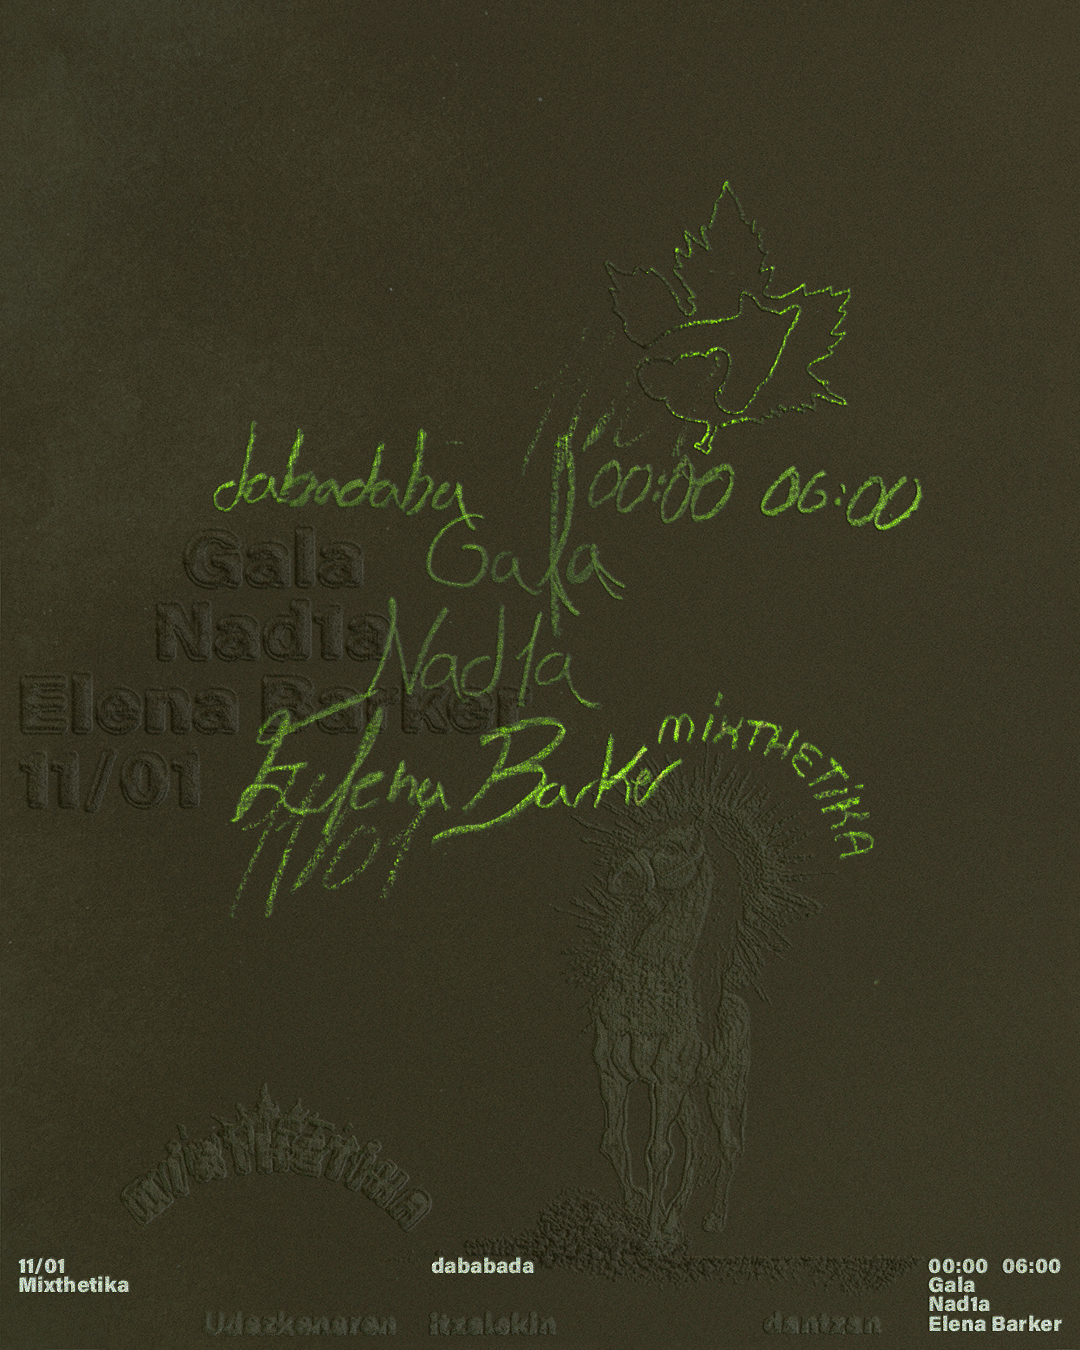 dabadaba
00:00 06:00
Gala
Nad1a
Elena Barker
11/01
mixTHETiKA
Gala
Nad1a
Elena Barker
11/01
mixthetika
11/01
Mixthetika
dababada
00:00 06:00
Gala
Nad1a
Elena Barker
Udazkenaren itzalekin dantzan